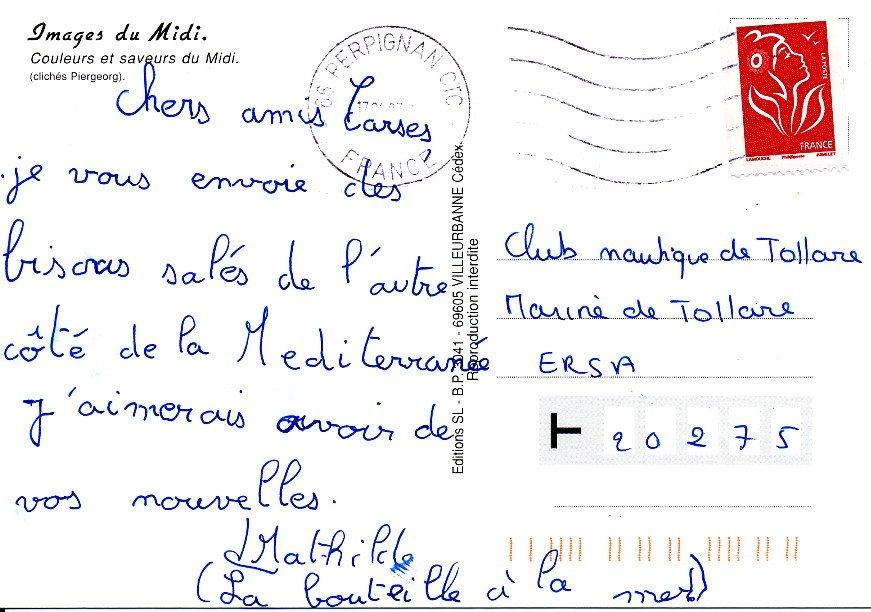 Images du Midi.
Couleurs et saveurs du Midi.
(clichés Piergeorg).
Chers amis Corses
je vous envoie des
bisous salés de l'autre
côté de la Mediterrané
J'aimerais avoir de
vos nouvelles.
Mathilde
(La bouteille à la mer!)
66 PERPIGNAN CTC
FRANCE
Editions SL - B.P. 3041 - 69605 VILLEURBANNE Cédex.
Reproduction interdite
LA POSTE
FRANCE
LAMOUCHE
JUMELET
Club nautique de Tollare
Marine de Tollare
ERSA
T 20275